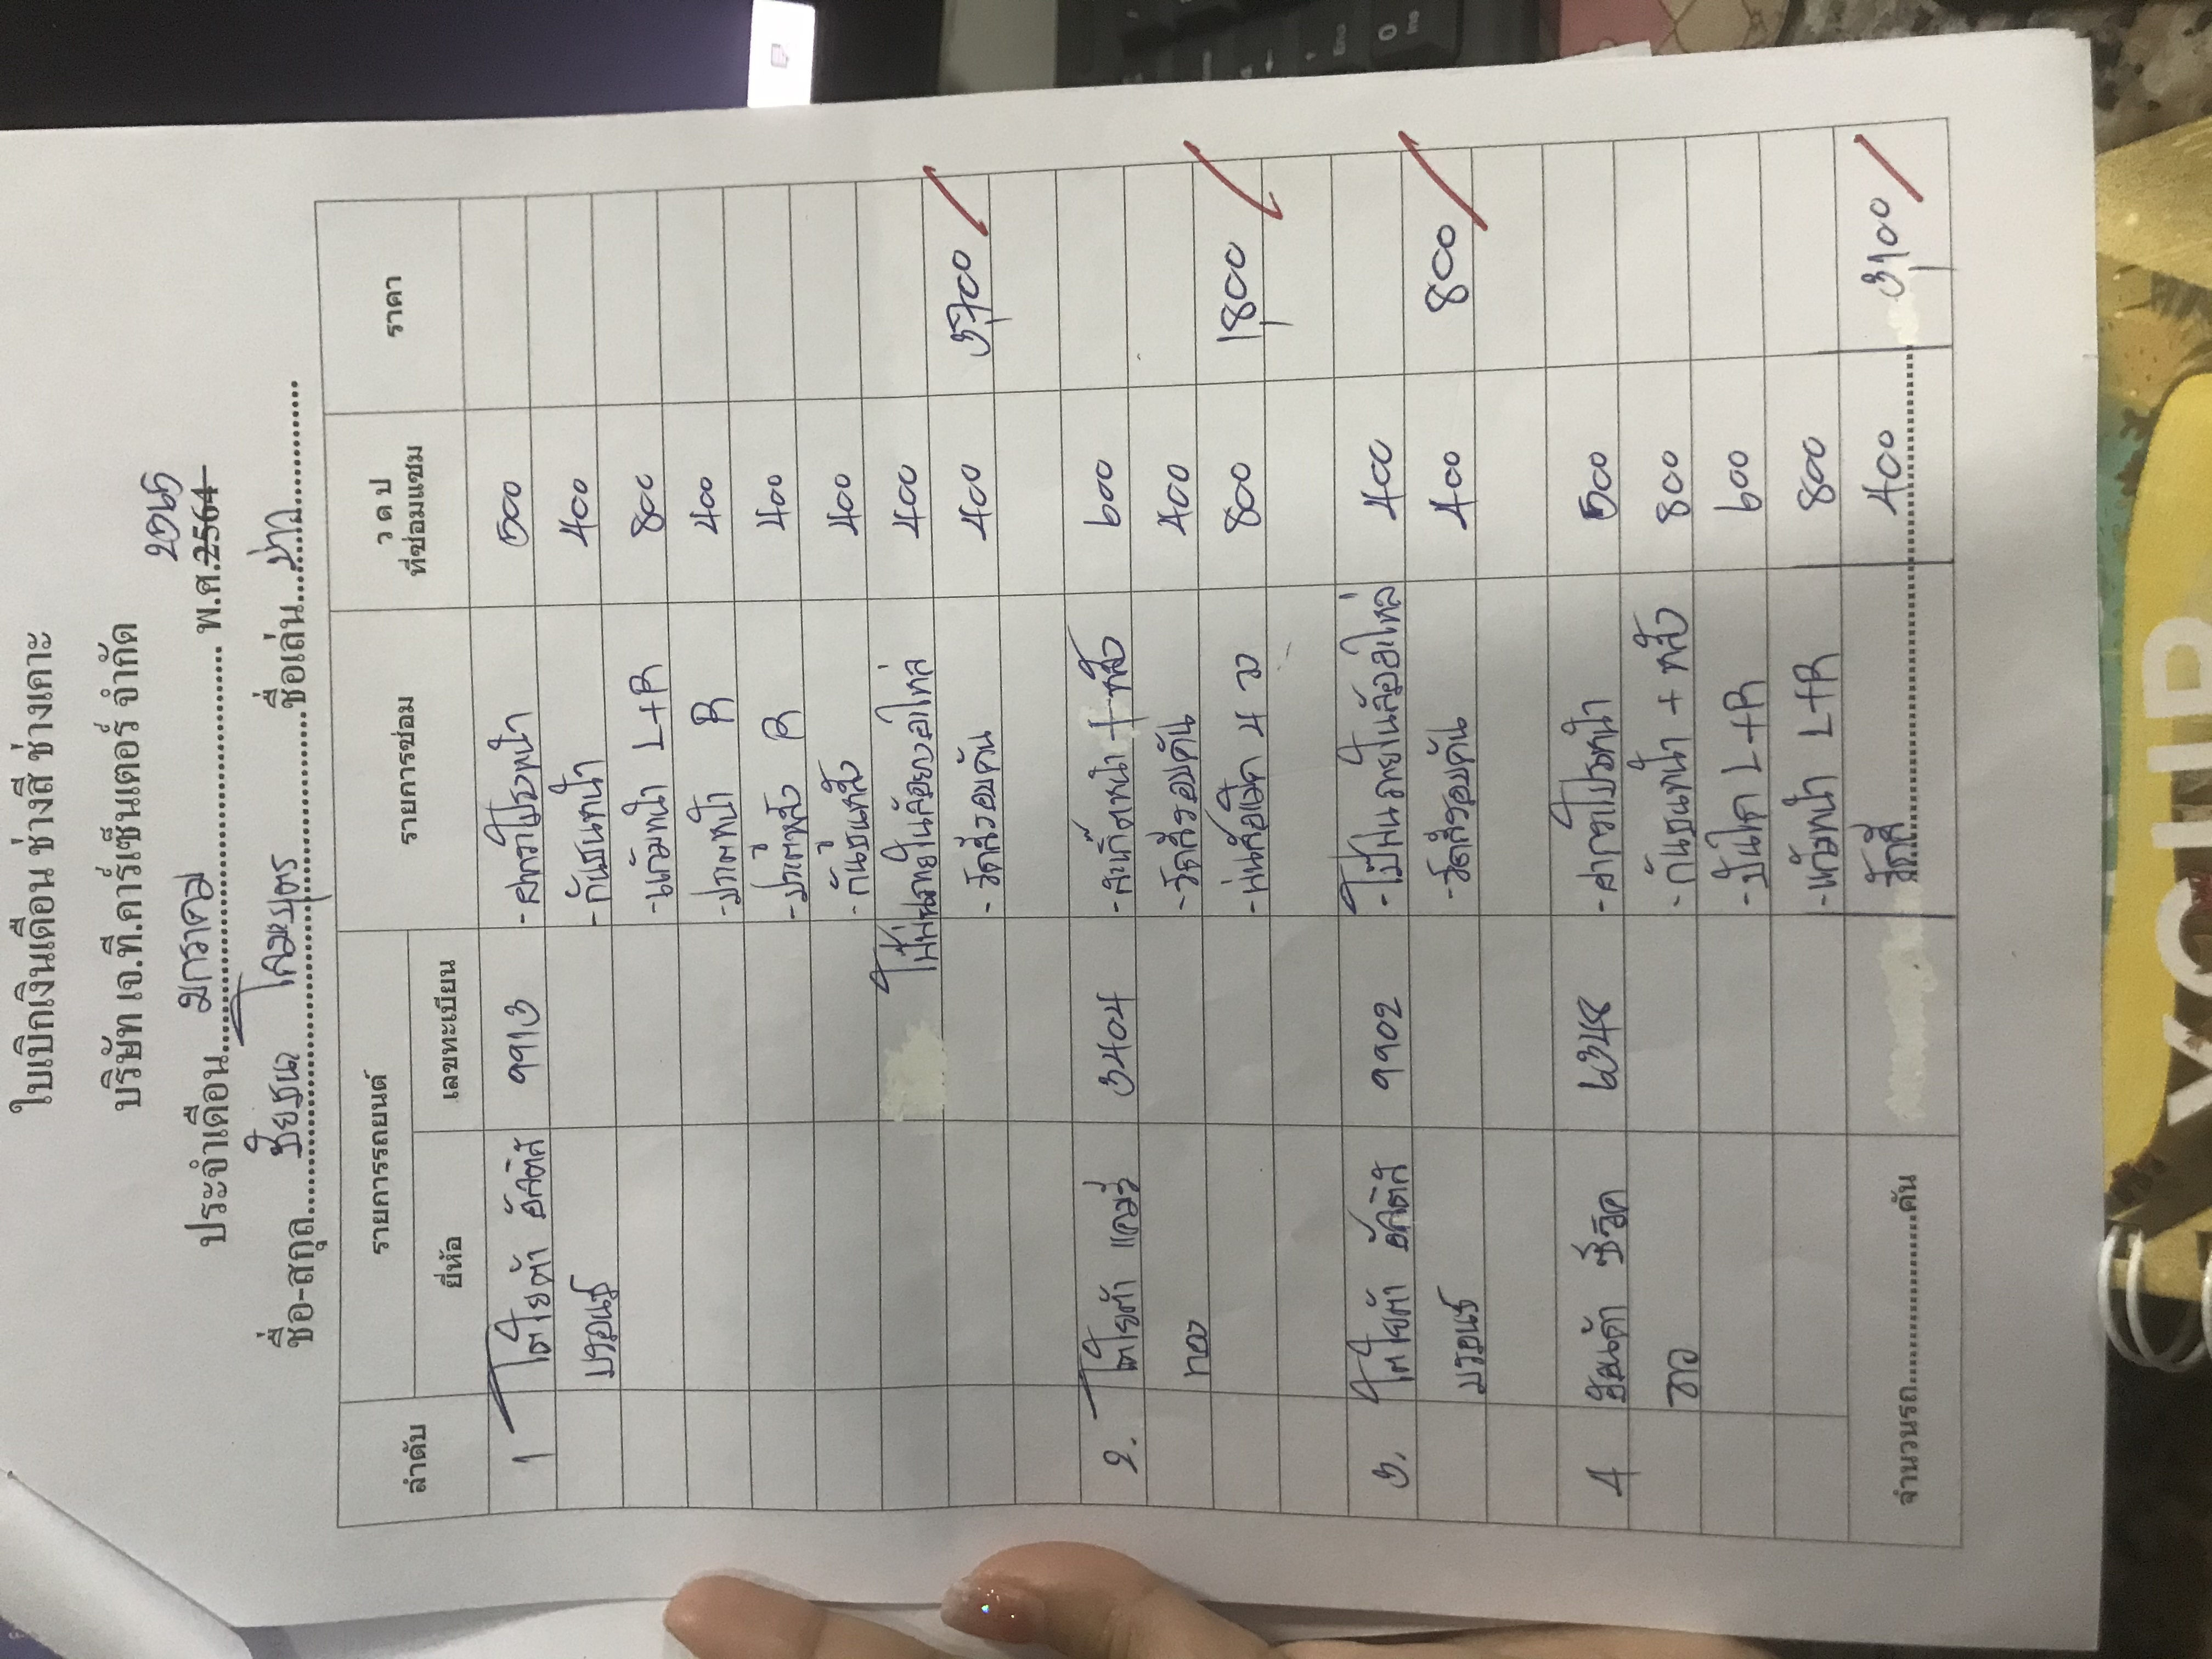 ใบเบิกเงินเดือน ช่างสี ช่างเคาะ
บริษัท เจ.ที.คาร์เซ็นเตอร์ จำกัด
ประจำเดือน มกราคม พ.ศ. 2564 2565
ชื่อ-สกุล ชัยชนะ ชื่อเล่น
ลำดับ รายการรถยนต์ รายการซ่อม ว ด ป ที่ซ่อมแซม ราคา
ยี่ห้อ เลขทะเบียน
1 โตโยต้า อัลติส 9913 - ฝากระโปรงหน้า 500
บรอนซ์ - กันชนหน้า 400
- แก้มหน้า L+R 800
- ประตูหน้า R 400
- ประตูหลัง R 400
- กันชนหลัง 400
400
- ขัดสีรอบคัน 400 3700
2. โตโยต้า แคมรี่ 3404 - สเกิ๊ตหน้า + หลัง 600
ทอง - ขัดสีรอบคัน 400
- พ่นล้อแม็ค 4 วง 800 1800
3. โตโยต้า อัลติส 9902 400
บรอนซ์ - ขัดสีรอบคัน 400 800
4 ฮอนด้า ซีวิค 6348 - ฝากระโปรงหน้า 500
ขาว - กันชนหน้า + หลัง 800
- บันได L+R 600
- แก้มหน้า L+R 800
จำนวนรถ..........คัน ขัดสี 400 3100
XCLIP